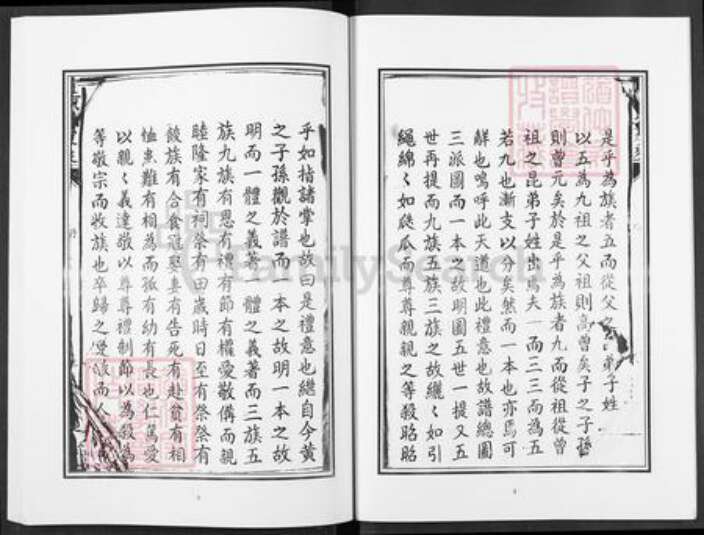 是乎為族者五而從父之昆弟子姓
以五為九祖之父祖則高曾矣子之子孫
則曾元矣於是乎為族者九而從祖從曾
祖之昆弟子姓出焉夫一而三三而為五
若九也漸支以分矣然而一本也亦焉可
辭也嗚呼此天道也此禮意也故譜總圖
三派圖而一本之故明圖五世一提又五
世再提而九族五族三族之故纚〻如引
繩綿〻如瓞瓜而尊尊親親之等殺昭昭
乎如指諸掌也故曰是禮意也繼自今黃
之子孫觀於譜而一本之故明一本之故
明而一體之義著一體之義著而三族五
族九族有恩有禮有節有權愛敬備而親
睦隆家有祠祭有田歲時日至有祭祭有
餕族有合食冠娶妻有告死有赴貧有相
恤患難有相為而孤有幼有長也仁篤愛
以親〻義達敬以尊尊禮制節以為殺為
等敬宗而收族也卒歸之受族而人
FamilySearch